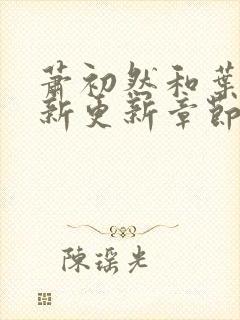 萧初然和葉
新更新章節
陳瑶光